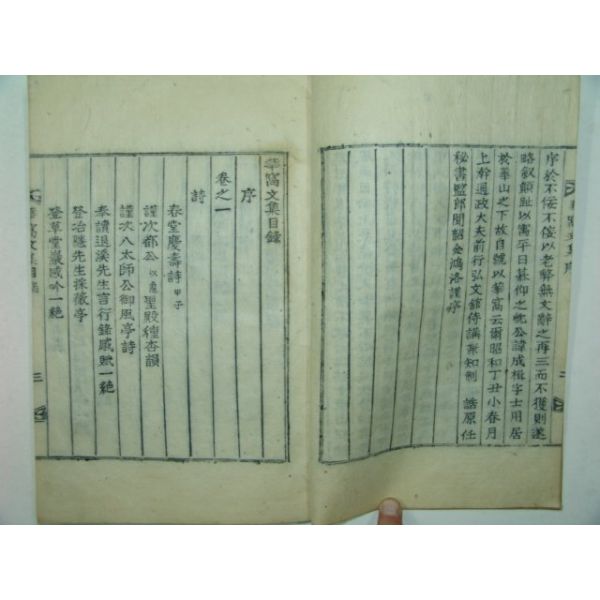 序於不佞不佞以老弊無文辭之再三而不獲則遂
略叙顛趾以寓平日慕仰之忱公諱成楫字士用居
於華山之下故自號以華窩云爾昭和丁丑小春月
上幹通政大夫前行弘文館侍講兼知制 誥原任
秘書監郎聞韶金鴻洛謹序
華窩文集序
二
華窩文集目錄
序
卷之一
詩
春堂慶壽詩 甲子
謹次都公 聖殿種杏韻
謹次八太師公御風亭詩
奉讀退溪先生言行錄感賦一絶
登冶隱先生採薇亭
登草堂巖感吟一絶
華窩文集目錄